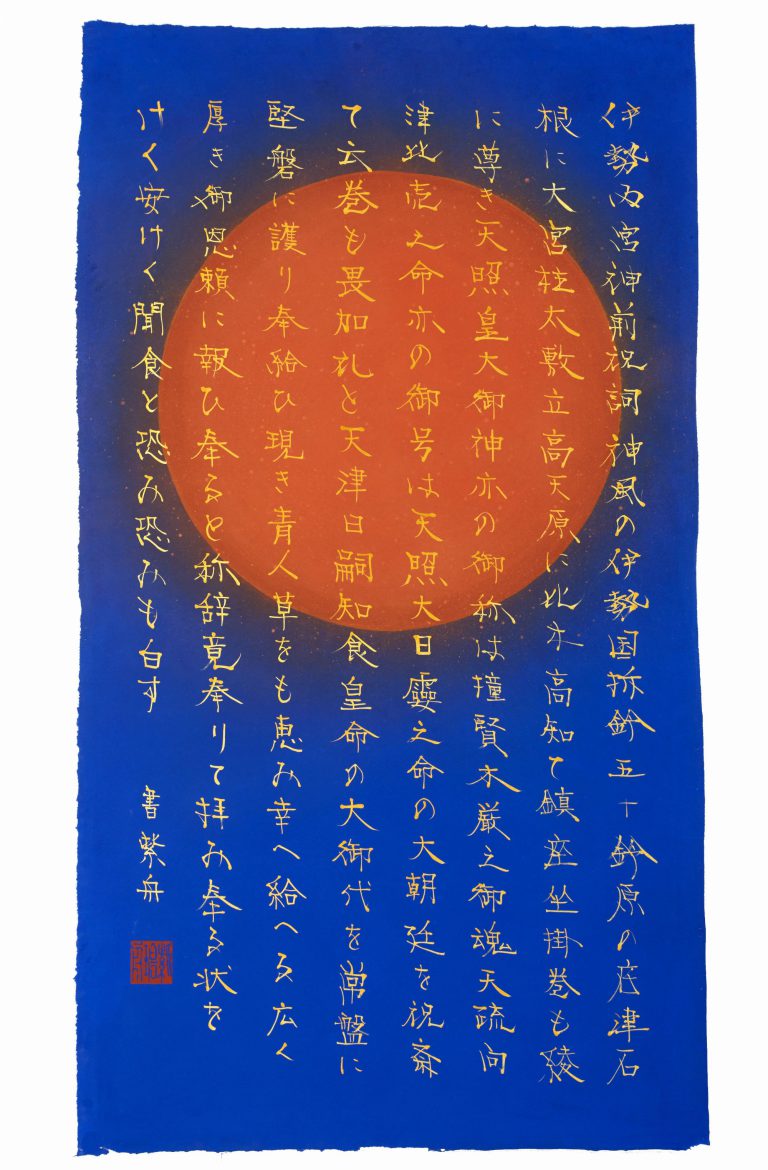 伊勢内宮神前祝詞神風の伊勢国拆鈴五十鈴原の底津石
根に大宮柱太敷立高天原に比木高知て鎮座坐掛巻も綾
に尊き天照皇大御神亦の御称は撞賢木厳之御魂天疏向
津比売之命亦の御号は天照大日孁之命の大朝廷を祝斎
て云巻も畏加礼と天津日嗣知食皇命の大御代を常盤に
堅磐に護り奉給ひ現き青人草をも恵み幸へ給へる広く
厚き御恩頼に報ひ奉ると称辞竟奉りて拝み奉る状を
けく安けく聞食と恐み恐みも白す
書紫舟